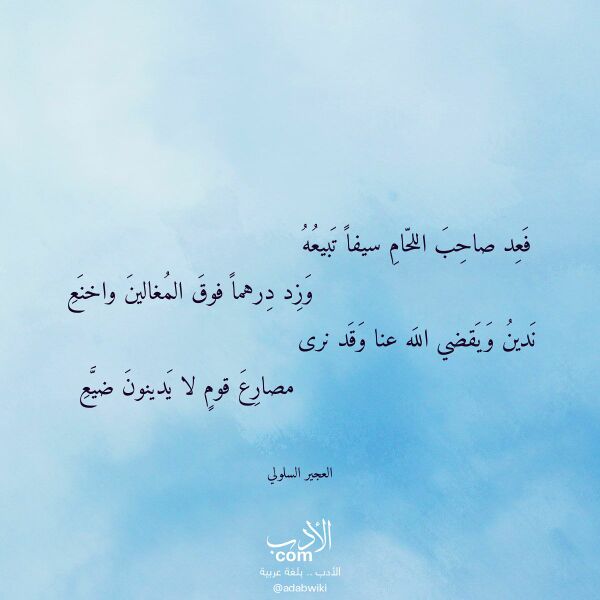 فَعِد صاحِبَ اللحّامِ سيفاً تَبيعُهُ
وَزِد دِرهماً فوقَ المُغالينَ واخنَعِ
نَدينُ وَيَقضي اللَه عنا وَقَد نرى
مصارِعَ قومٍ لا يَدينونَ ضيَّعِ
العجير السلولي
الأدب
com
الأدب .. بلغة عربية
@adabwiki